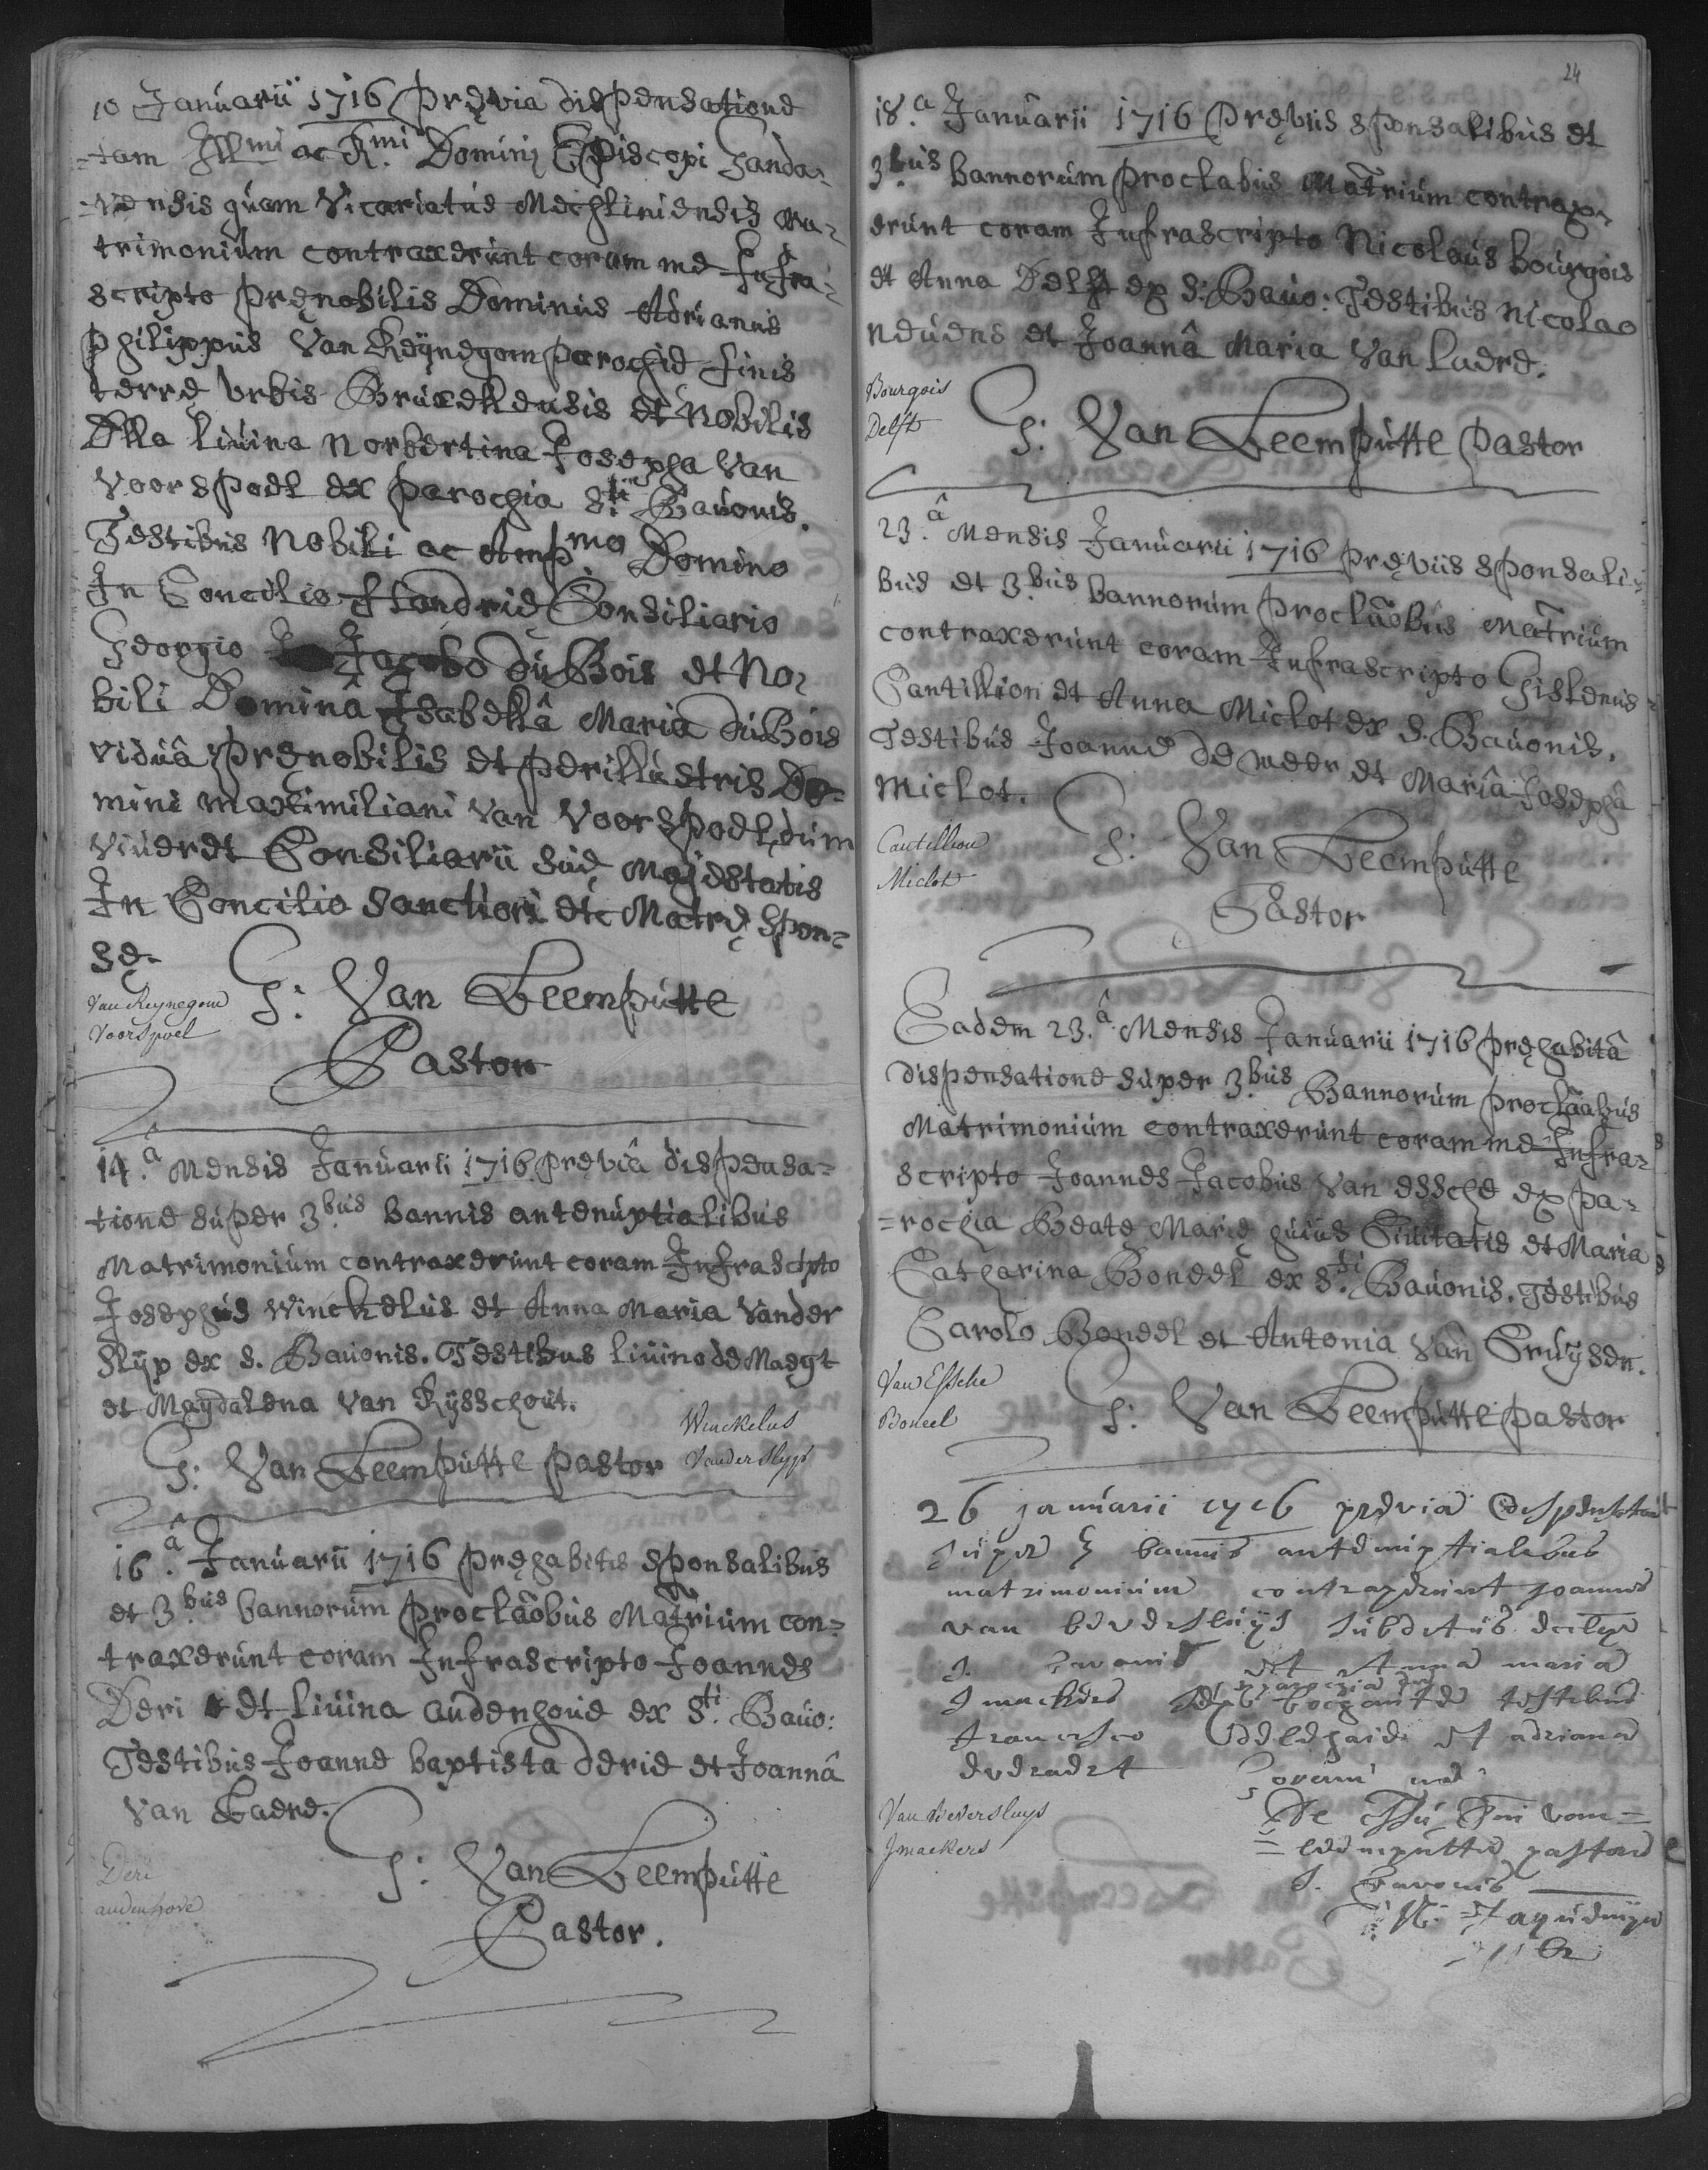 10 Januarii 1716 pręvia dispensatione
=tam Illmi ac R.mi Domini Episcopi Ganda=
=vensis quam Vicariatus Mechliniensis Ma=
trimonium contraxerunt coram me Infra=
scripto pręnobilis Dominus Adrianus
philippus Van Reÿnegom parochię finis
terrę Urbis Bruxellensis et Nobilis
Dlla livina Norbertina Josepha Van
Voorspoel ex parochia S.ti Bavonis.
Testibus Nobili ac Amp.mo Domino
In Concilio flandrię Consiliario
Georgio Jacobo du Bois et No=
bili Dominâ Isabellâ Maria du Bois
viduâ pręnobilis et perillustris Do=
mini maximiliani Van Voorspoel, dum
viveret Consiliarii suę Majestatis
In Concilio Sanctiori etc Matre spon=
sę.
G: Van Leempútte
Pastor
Van Reynegom
Voorspoel
14.a Mensis Januarii 1716 pręviâ dispensa=
tione super 3.bus bannis antenuptialibus
Matrimonium contraxerunt coram Infrascripto
Josephus Winckelus et Anna Maria Vander
Slÿp ex S. Bavonis. Testibus livino de Maegt
et Magdalena Van Rÿsschout.
G: Van Leempútte pastor
Winckelus
Vander slyp
16.â Januarii 1716 pręhabitis sponsalibus
et 3.bus bannorum proclãobus Mãtrium con=
traxerunt coram Infrascripto Joannes
Deri et livina audenhove ex S.ti Bavo:
Testibus Joanne baptista derie et Joannâ
Van Laere.
G: Van Leempútte
Pastor.
Deri
audenhove
24
18.a Januarii 1716 pręviis sponsalibus et
3.bus bannorum proclabus Mãtrium contrax=
erunt coram Infrascripto Nicolaus bourgois
et Anna Delft ex S: Bavo: Testibus Nicolao
neuens et Joannâ Maria Van laere.
Bourgois
Delft
G: Van Leempútte pastor
23.â Mensis Januarii 1716 pręviis sponsali=
bus et 3.bus bannorum proclãobus Mãtrium
contraxerunt coram Infrascripto Gislenus
Cantillion et Anna Miclot ex S. Bavonis.
Testibus Joanne de meer et Mariâ Josephâ
Miclot.
Cantillion
Miclot
G: Van Leempútte
Pastor
Eadem 23.â Mensis Januarii 1716 pręhabitâ
dispensatione super 3.bus Bannorum proclãabus
Matrimonium contraxerunt coram me Infra=
scripto Joannes Jacobus Van essche ex pa=
=rochia Beatę Marię huius Civitatis et Maria
Catharina Boneel ex S.ti Bavonis. Testibus
Carolo Boneel et Antonia Van Cruÿsen.
Van Essche
Boneel
G: Van Leempútte pastor
26 januarii 1716 prævia dispensation
super 3 bannis antenuptialibus
matrimonium contraxerunt joannes
van beversluijs subditus
S. bavonis et Anna maria
Imackers ex parochia testibus
francisco et adriana
coram me
Van Beversluys
Jmackers
van=
=leempútte pastore
S. bavonis